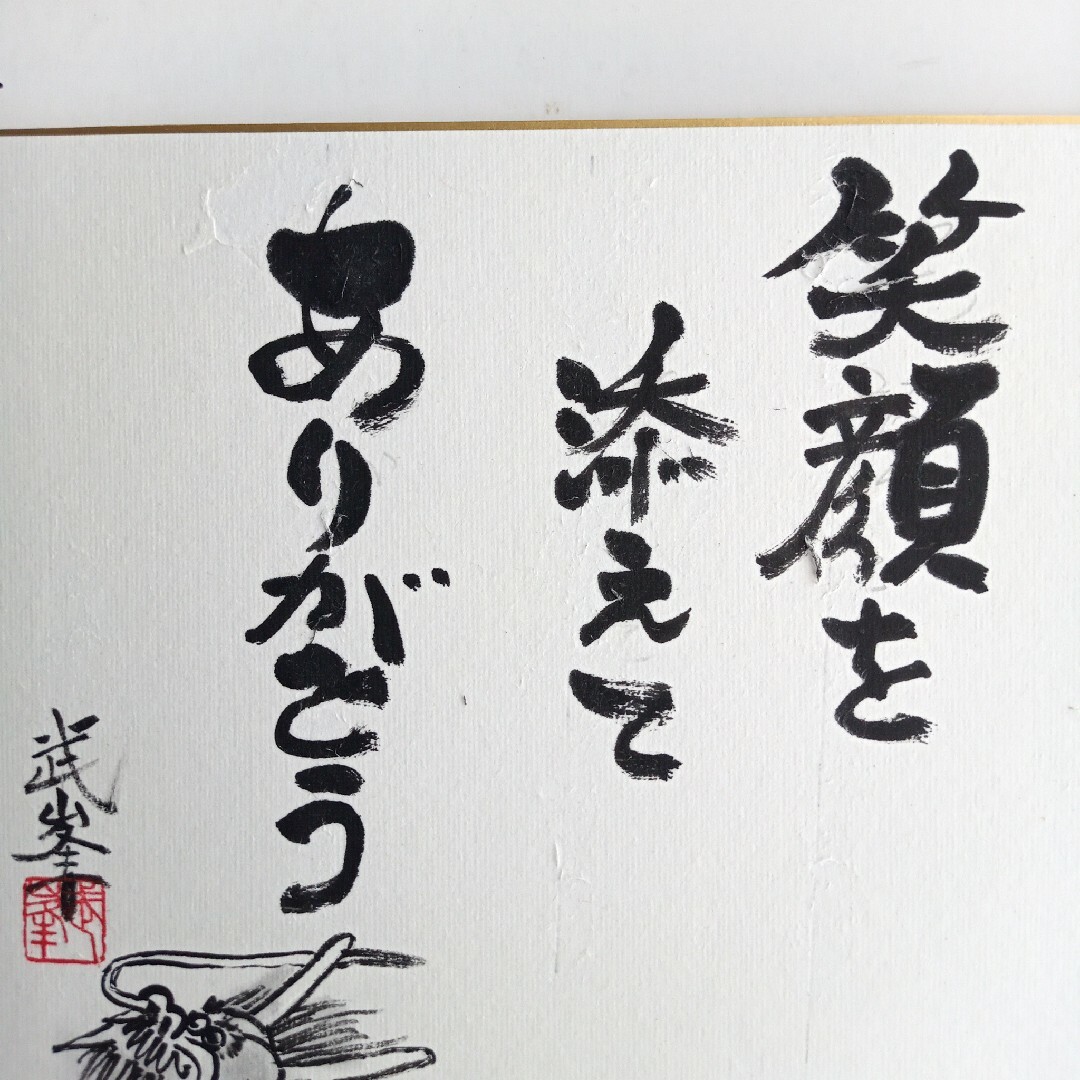 笑顔を
添えて
ありがとう
武峯